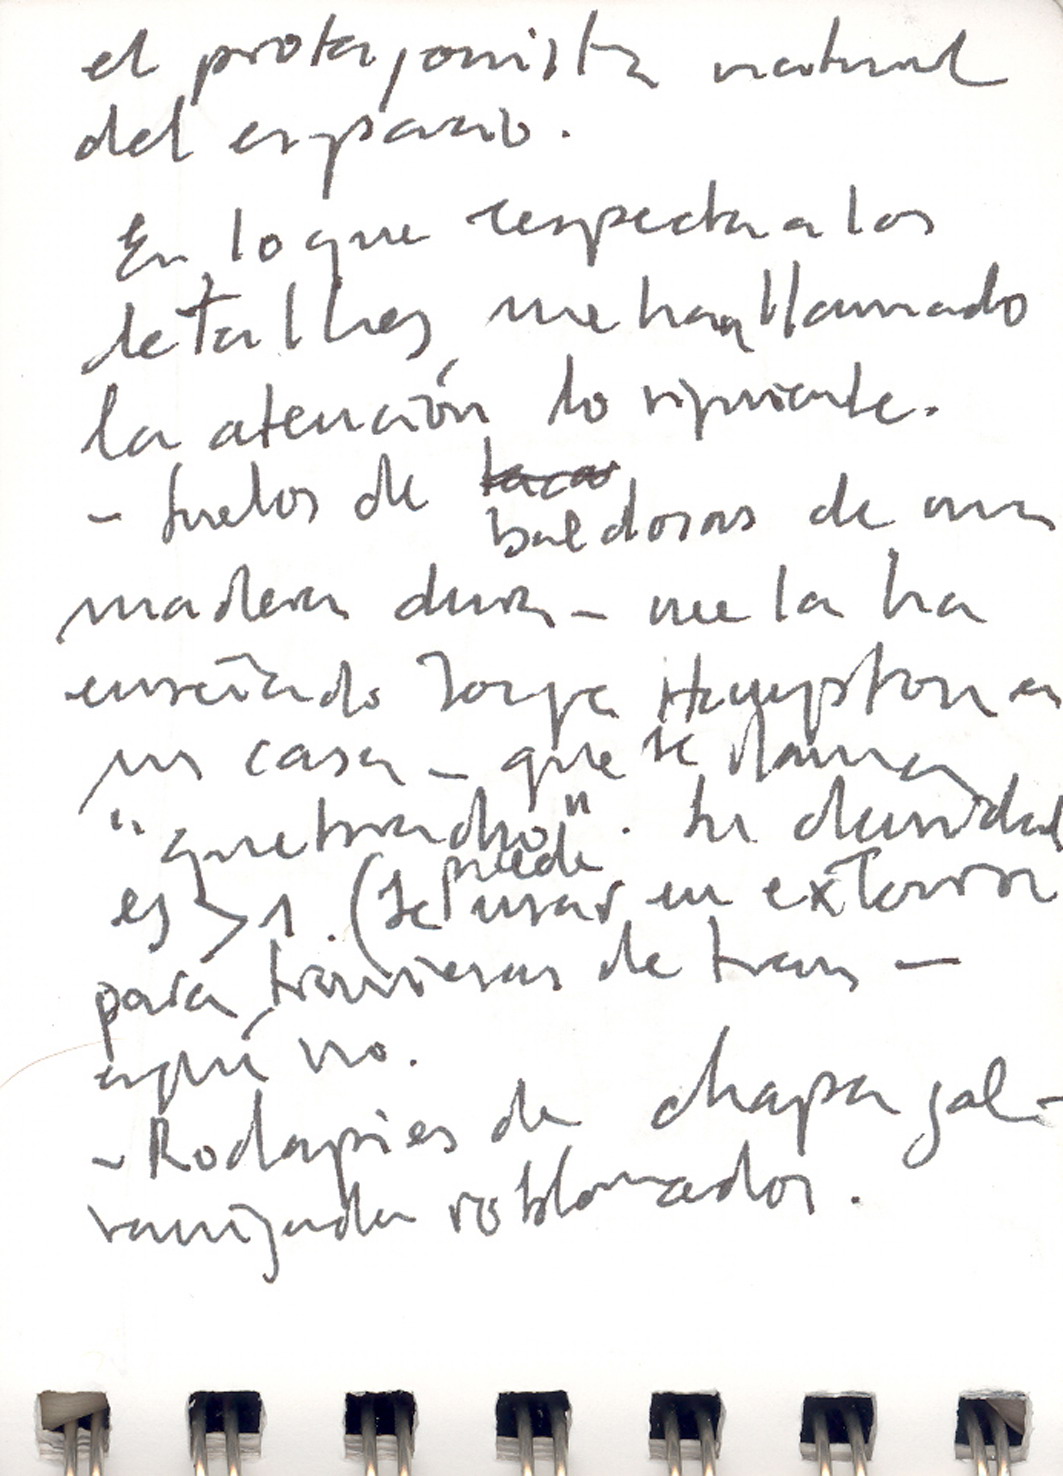 el protagonista natural
del espacio.
En lo que respecta a los
detalles, me han llamado
la atención lo siguiente.
- Suelos de taca
baldosas de una
madera dura - me la ha
enseñado Jorge Hampton en
su casa - que se llama
"quebracho". Su densidad
es > 1. (Se puede usar en exterior
para traviesas de tren -
aquí no.
- Rodapies de chapa gal-
vanizada roblonados.